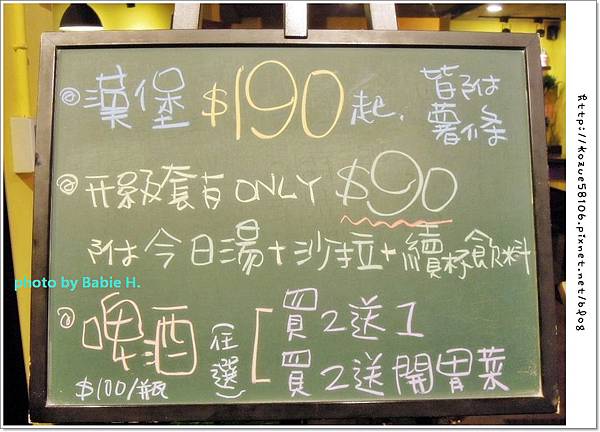 ◎漢堡 $190 起. 皆附薯條
◎升級套省 ONLY $90
附今日湯+沙拉+續杯飲料
◎啤酒 $100/瓶 (任選) [ 買2送1
買2送開胃菜
photo by Babie H.
http://kozue58106.pixnet.net/blog